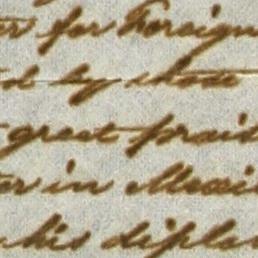 for Foreign
by those
great prais
in Mexi
his diplo